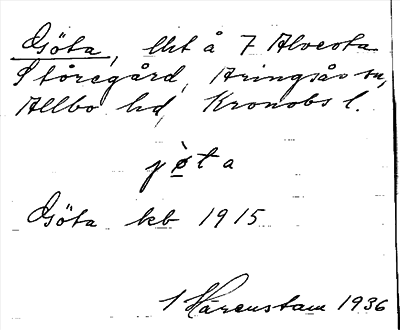 Göta, lht å 7 Alvesta
Storegård, Aringsås sn,
Allbo hd, Kronobs l.
jòta
Göta kb 1915
I Harenstam 1936